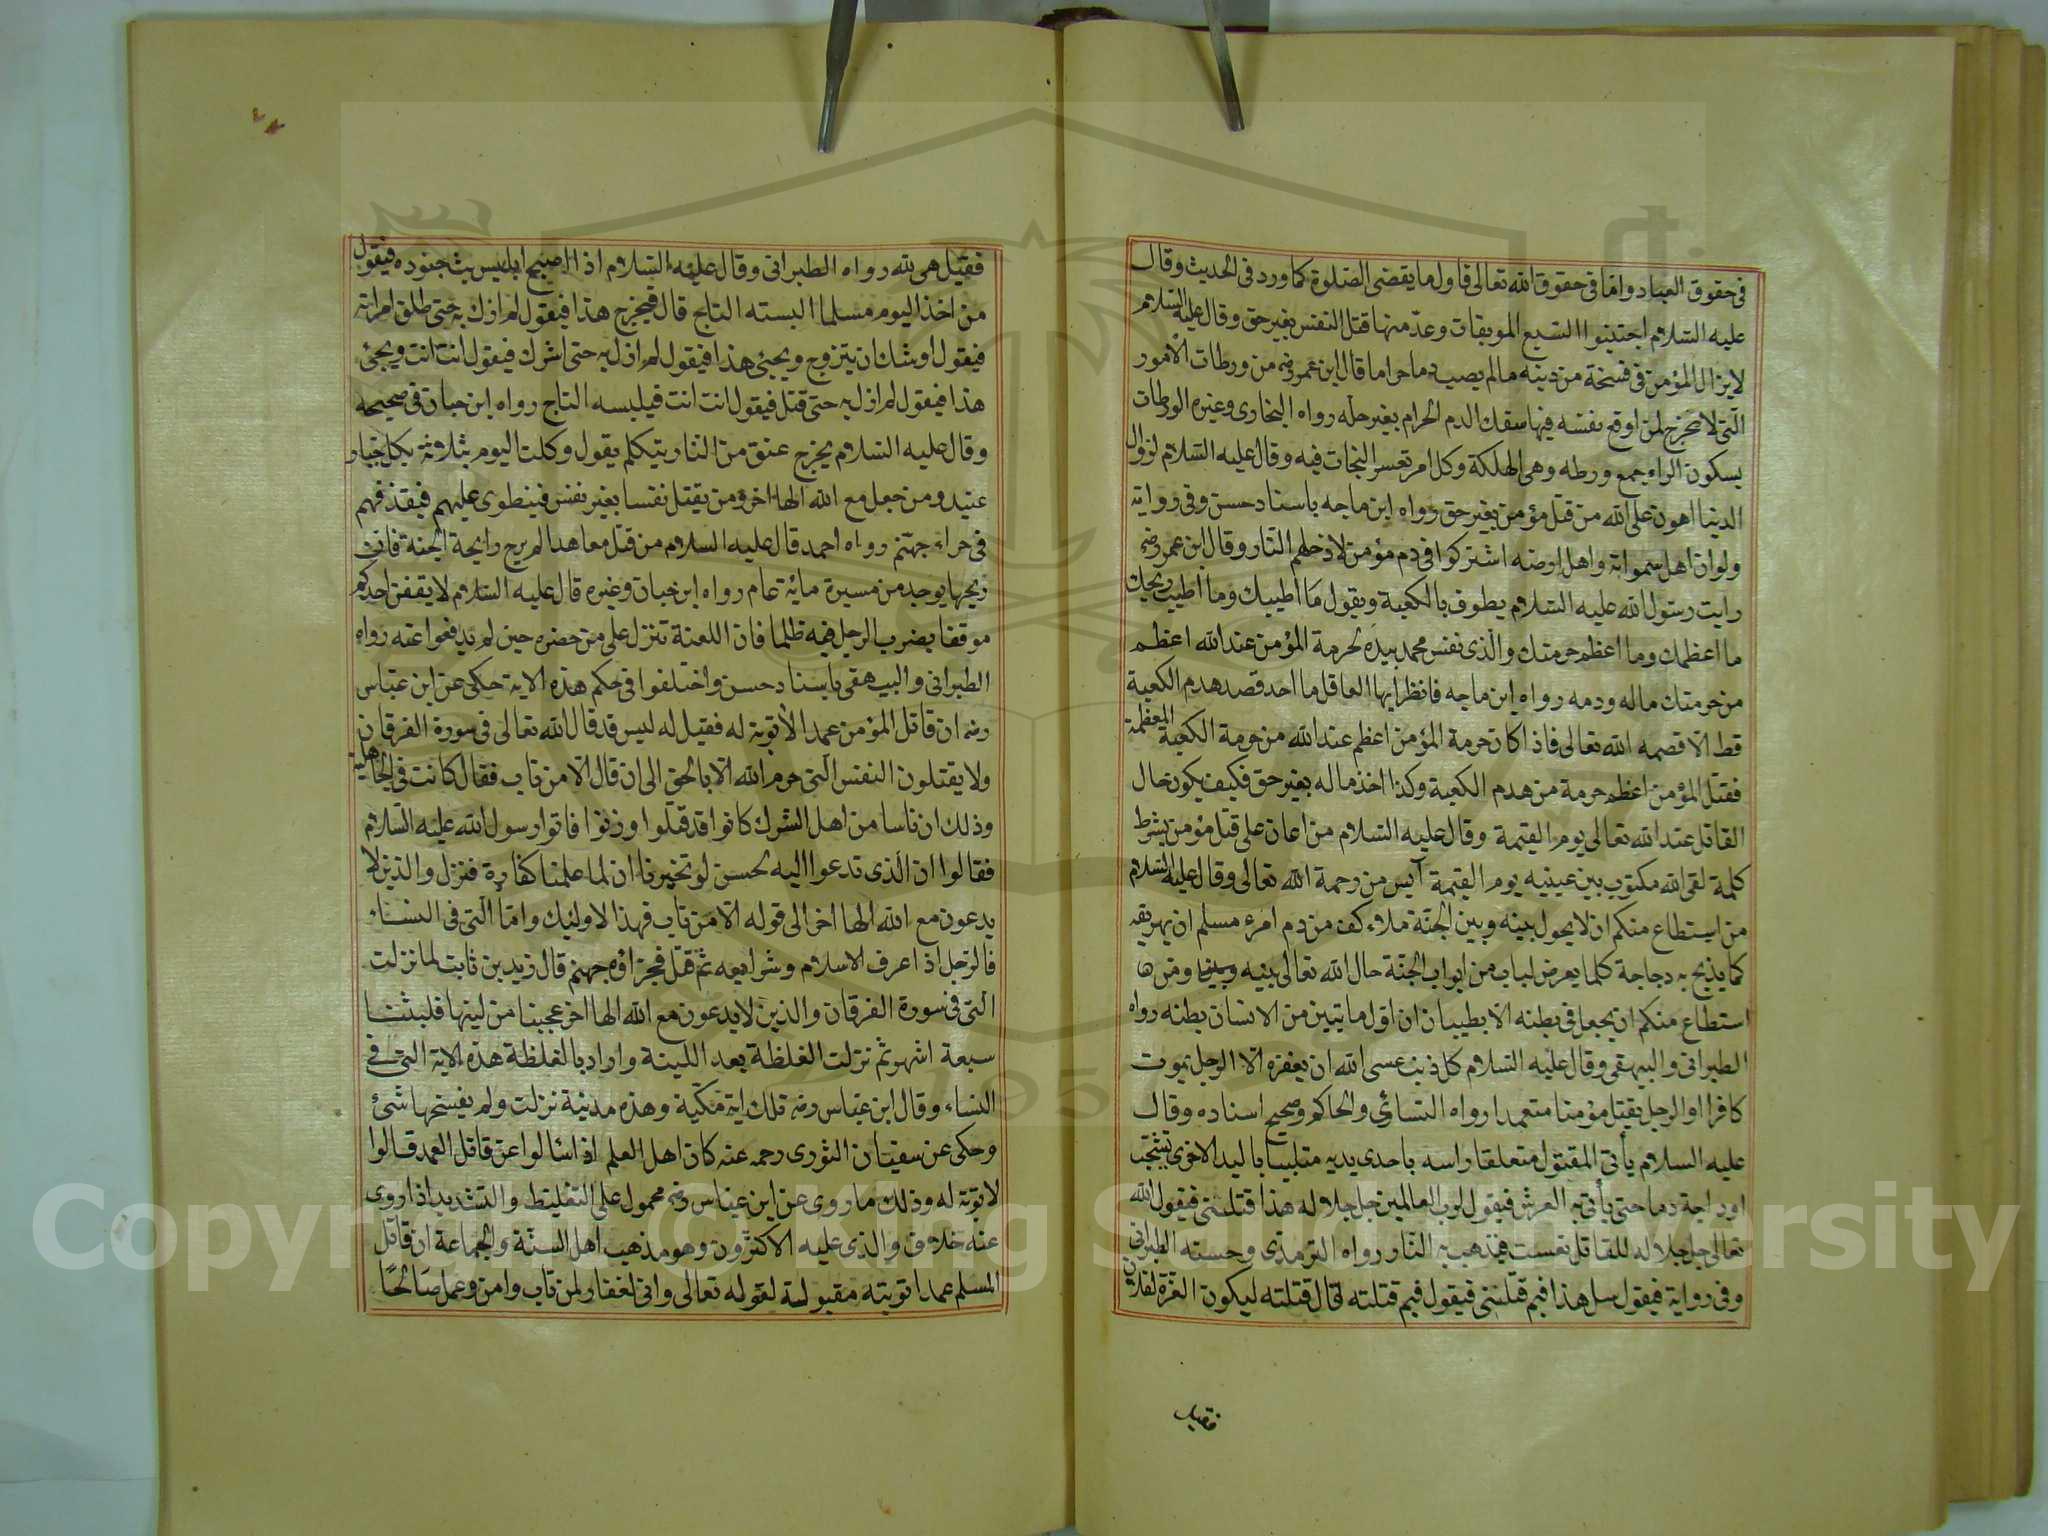 فى حقوق العباد واما فى حقوق الله تعالى فاول ما يقضى الصلوة كما ورد فى الحديث وقال
عليه السلام اجتنبوا السبع الموبقات وعدّ منها قتل النفس بغير حق وقال عليه السلام
لا يزال المؤمن فى فسحة من دينه ما لم يصب دما حراما قال ابن عمر رضه من ورطات الأمور
التى لا مخرج لمن اوقع نفسه فيها سفك الدم الحرام بغير حله رواه البخارى وغيره الورطات
بسكون الراء جمع ورطه وهى الهلكة وكل امر تعسر النجات فيه وقال عليه السلام لزوال
الدنيا اهون على الله من قتل مؤمن بغير حق رواه ابن ماجه باسناد حسن وفى رواية
ولو ان اهل سمواته واهل ارضه اشتركوا فى دم مؤمن لادخلهم النار وقال ابن عمر رضه
رايت رسول الله عليه السلام يطوف بالكعبة ويقول ما اطيبك وما اطيب ريحك
ما اعظمك وما اعظم حرمتك والذى نفس محمد بيده لحرمة المؤمن عند الله اعظم
من حرمتك ماله ودمه رواه ابن ماجه فانظر ايها العاقل ما احد قصد هدم الكعبة
قط الا قصمه الله تعالى فاذا كان حرمة المؤمن اعظم عند الله من حرمة الكعبة المعظمة
فقتل المؤمن اعظم حرمة من هدم الكعبة وكذا اخذ ماله بغير حق فكيف يكون حال
القاتل عند الله تعالى يوم القيمة وقال عليه السلام من اعان على قتل مؤمن بشرط
كلمة لقى الله مكتوب بين عينيه يوم القيمة آيس من رحمة الله تعالى وقال عليه السلام
من استطاع منكم ان لا يحول بينه وبين الجنة ملاء كف من دم امرء مسلم ان يهريقه
كما يذبح به دجاجة كلما يعرض لباب من ابواب الجنة حال الله تعالى بينه وبينه ومن ها
استطاع منكم ان يجعل فى بطنه الا طيبا ن ان اول ما يتبين من الانسان بطنه رواه
الطبرانى والبيهقى وقال عليه السلام كل ذنب عسى الله ان يغفره الا الرجل يموت
كافرا او الرجل يقتل مؤمنا متعمدا رواه النسائى والحاكم وصحيح اسناده وقال
عليه السلام يأتى المقتول متعلقا راسه باحدى يديه متلببا باليد الاخرى تشخب
اوداجه دما حتى يأتى به العرش فيقول لرب العالمين جل جلاله هذا قتلنى فيقول الله
تعالى جل جلاله للقاتل تعست فيذهب به النار رواه الترمذى وحسنه الطبرانى
وفى رواية فيقول سل هذا فيم قتلنى فيقول فيم قتلته قال قتلته ليكون العزة لفلان
فقيل
فقيل هى لله رواه الطبرانى وقال عليه السلام اذا اصبح ابليس بث جنوده فيقول
من اخذ اليوم مسلما البسته التاج قال فيخرج هذا فيقول لم ازل به حتى طلق امراته
فيقول اوشك ان يتزوج ويجئ هذا فيقول لم ازل به حتى اشرك فيقول انت انت ويجئ
هذا فيقول لم ازل به حتى قتل فيقول انت انت فيلبسه التاج رواه ابن حبان فى صحيحه
وقال عليه السلام يخرج عنق من النار يتكلم يقول وكلت اليوم بثلاثة بكل جبار
عنيد ومن جعل مع الله الها اخر ومن يقتل نفسا بغير نفس فينطوى عليهم فيقذفهم
فى حراء جهنم رواه احمد قال عليه السلام من قتل معاهدا لم يرح رايحة الجنة فان
ريحها يوجد من مسيرة مائة عام رواه ابن حبان وغيره قال عليه السلام لا يقفن احدكم
موقفا يضرب الرجل فيه ظلما فان اللعنة تنزل على من حضره حين لم يدفعوا عنه رواه
الطبرانى والبيهقى باسناد حسن واختلفوا فى حكم هذه الاية حكى عن ابن عباس
رضه ان قاتل المؤمن عمدا لا توبة له فقيل له ليس قد قال الله تعالى فى سورة الفرقان
ولا يقتلون النفس التى حرم الله الا بالحق الى ان قال الا من تاب فقال كانت فى الجاهلية
وذلك ان ناسا من اهل الشرك كانوا قد قتلوا وزنوا فاتوا رسول الله عليه السلام
فقالوا ان الذى تدعوا اليه لحسن لو تخبرنا ان لما علمنا كفارة فنزل والذين لا
يدعون مع الله الها اخر الى قوله الا من تاب فهذا لاولئك واما التى فى النساء
فالرجل اذا عرف الاسلام وشرايعه ثم قتل فجزاؤه جهنم قال زيد بن ثابت لما نزلت
التى فى سورة الفرقان والذين لا يدعون مع الله الها اخر عجبنا من لينها فلبثنا
سبعة اشهر ثم نزلت الغلظة بعد اللينة واراد بالغلظة هذه الاية التى فى
النساء وقال ابن عباس رضه تلك اية مكية وهذه مدينة نزلت ولم يفسخها شئ
وحكى عن سفيان الثورى رحمه عنه كان اهل العلم اذا سالوا عن قاتل العمد قالوا
لا توبة له وذلك ما روى عن ابن عباس رضه محمول على التغليظ والتشديد اذا روى
عنه خلافه والذى عليه الاكثرون وهو مذهب اهل السنة والجماعة ان قاتل
المسلم عمدا توبته مقبولة لقوله تعالى وانى لغفار لمن تاب وامن وعمل صالحًا
Copyright © King Saud University